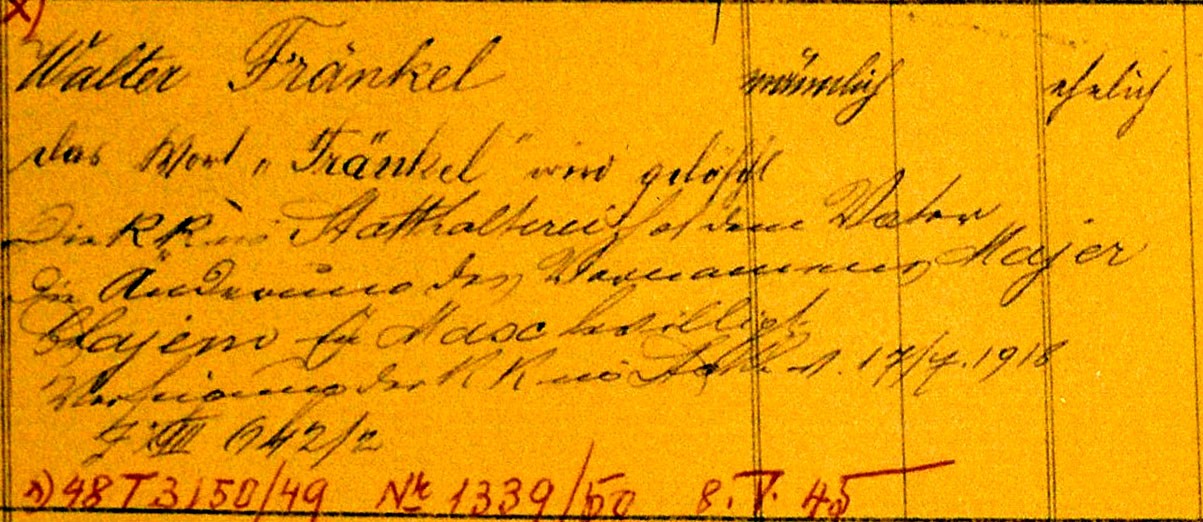 x)
Walter Fränkel männlich ehelich
das Wort „Fränkel" wird gelöscht
Die KK nö Statthalterei hat dem Vater
die Änderung des Vornamens Majer
Chajem in Max bewilligt
der KK nö Statth. v. 17/7. 1918
642/2
x) 48 T 3150/49 Nk 1339/50 8. V. 45